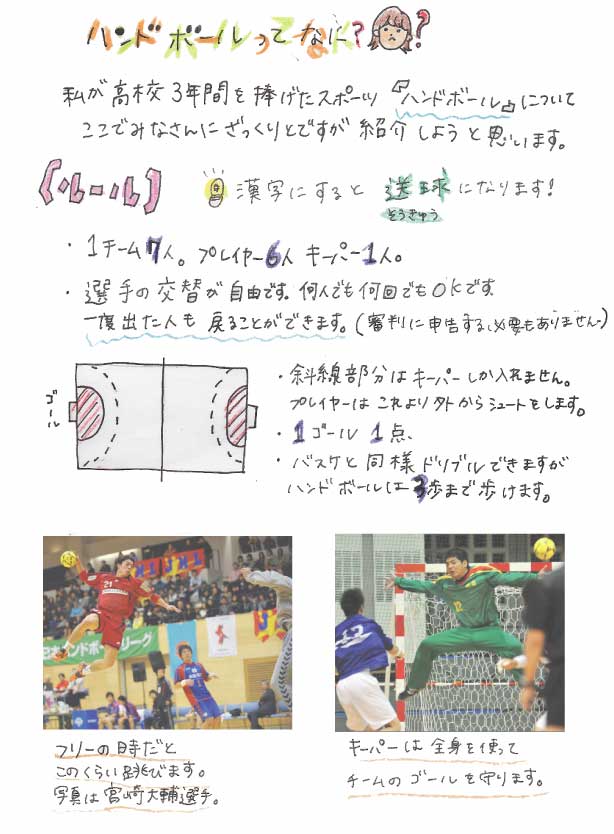 ハンドボールってなに??
私が高校3年間を捧げたスポーツ『ハンドボール』について
ここでみなさんにざっくりとですが紹介しようと思います。
【ルール】
漢字にすると 送球になります!
そうきゅう
・1チーム7人。プレイヤー6人 キーパー1人。
・選手の交替が自由です。何人でも何回でもOKです
一度出た人も戻ることができます。(審判に申告する必要もありません)
ゴール
・斜線部分はキーパーしか入れません。
プレイヤーはこれより外からシュートをします。
・1ゴール1点、
・バスケと同様ドリブルできますが
ハンドボールは3歩まで歩けます。
21
ンドボールリーグ
12
12
フリーの時だと
このくらい跳びます。
写真は宮﨑大輔選手。
キーパーは全身を使って
チームのゴールを守ります。